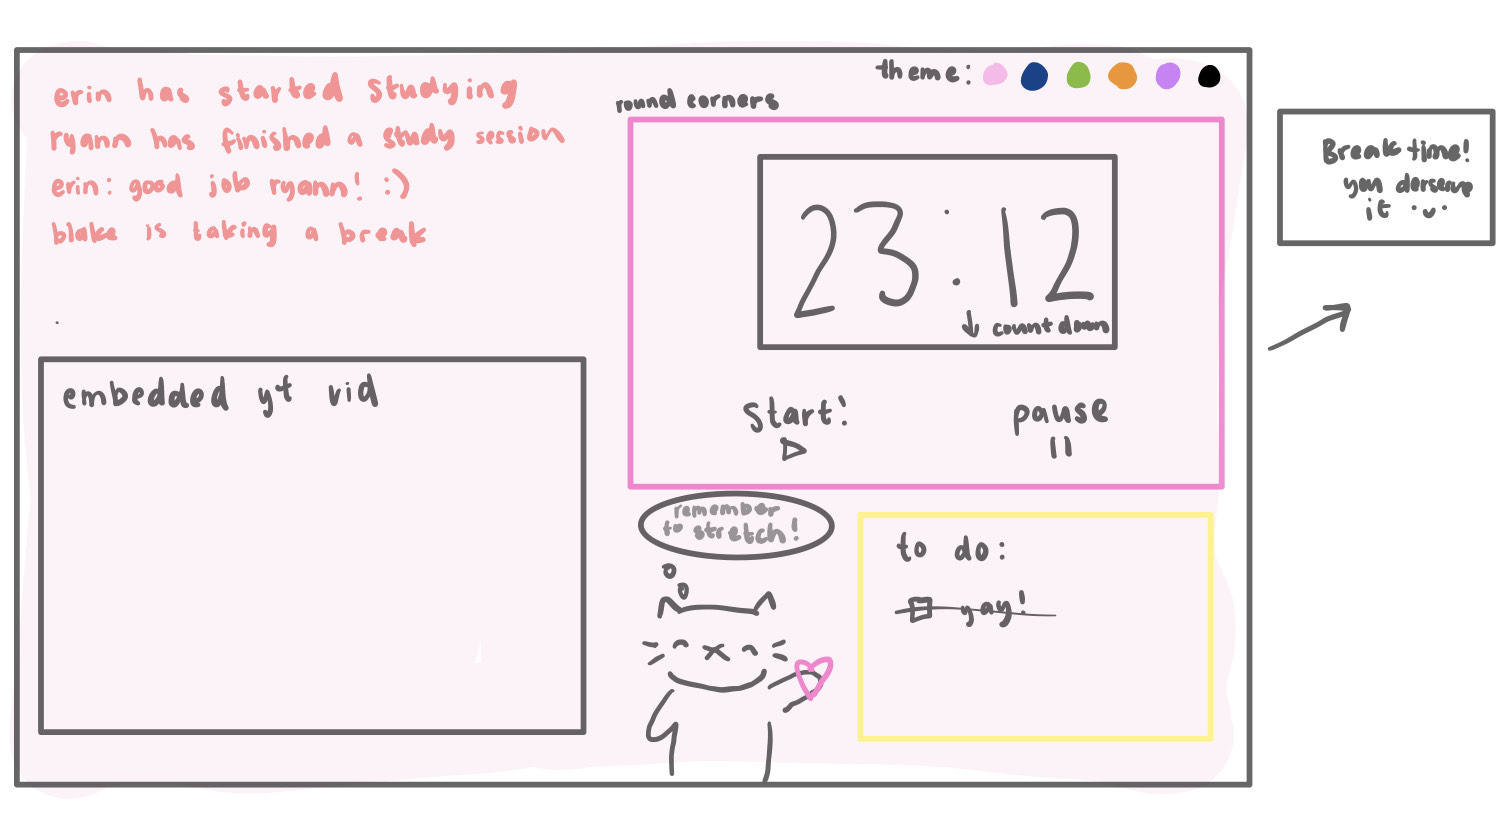 erin has started studying
ryann has finished a study session
erin: good job ryann! :)
blake is taking a break
theme:
round corners
23:12
↓ countdown
start!
pause
embedded yt vid
remember
to stretch!
to do:
yay!
Break time!
you derserve
it